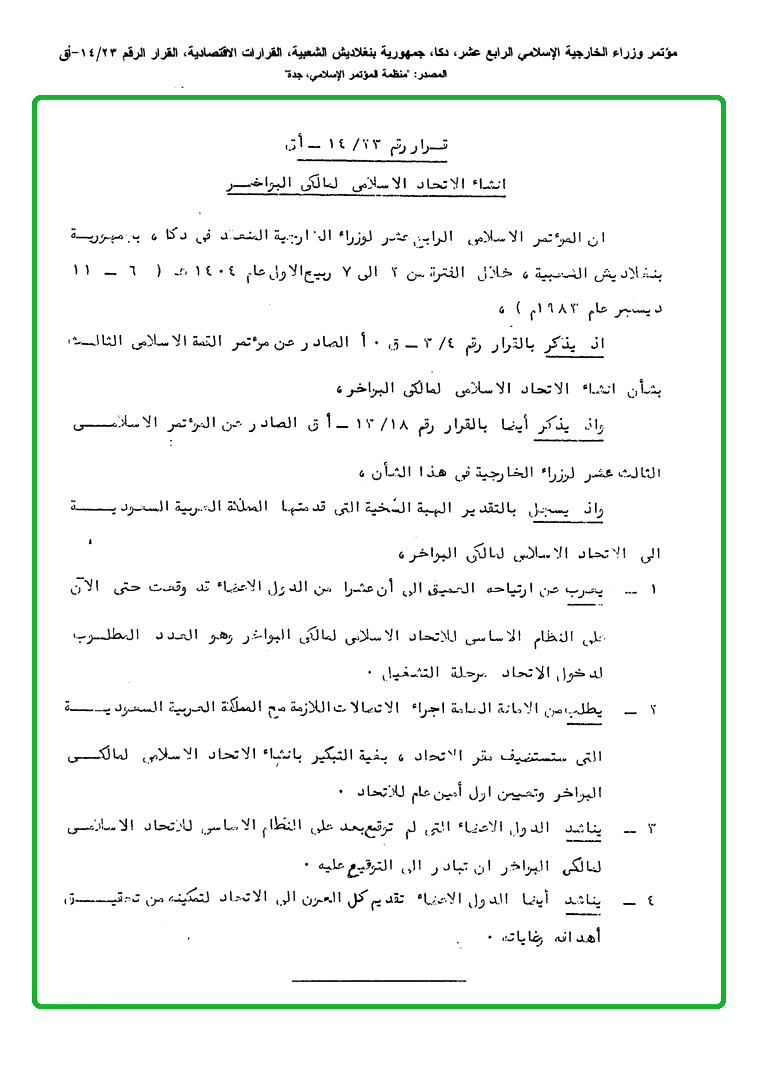 مؤتمر وزراء الخارجية الإسلامي الرابع عشر، دكا، جمهورية بنغلاديش الشعبية، القرارات الاقتصادية، القرار الرقم ١٤/٢٣-أق
المصدر: "منظمة المؤتمر الإسلامي، جدة"
قرار رقم ١٤/٢٣ – أق
انشاء الاتحاد الاسلامى لمالكى البواخر
ان المؤتمر الاسلامى الرابع عشر لوزراء الخارجية المنعقد فى دكا ، بجمهورية
بنغلاديش الشعبية ، خلال الفترة من ٢ الى ٧ ربيع الاول عام ١٤٠٤ هـ ( ٦ – ١١
ديسمبر عام ١٩٨٣م ) ،
اذ يذكر بالقرار رقم ٣/٤ – ق ٠ أ الصادر عن مؤتمر القمة الاسلامى الثالث
بشأن انشاء الاتحاد الاسلامى لمالكى البواخر ،
واذ يذكر أيضا بالقرار رقم ١٣/١٨ – أ ق الصادر عن المؤتمر الاسلامى
الثالث عشر لوزراء الخارجية فى هذا الشأن ،
واذ يسجل بالتقدير الهبة السخية التى قدمتها المملكة العربية السعودية
الى الاتحاد الاسلامى لمالكى البواخر ،
١ – يعرب عن ارتياحه العميق الى أن عشرا من الدول الاعضاء قد وقعت حتى الآن
على النظام الاساسى للاتحاد الاسلامى لمالكى البواخر وهو العدد المطلوب
لدخول الاتحاد مرحلة التشغيل ٠
٢ – يطلب من الامانة العامة اجراء الاتصالات اللازمة مع المملكة العربية السعودية
التى ستستضيف مقر الاتحاد ، بغية التبكير بانشاء الاتحاد الاسلامى لمالكى
البواخر وتعيين اول أمين عام للاتحاد ٠
٣ – يناشد الدول الاعضاء التى لم توقع بعد على النظام الاساسى للاتحاد الاسلامى
لمالكى البواخر ان تبادر الى التوقيع عليه ٠
٤ – يناشد أيضا الدول الاعضاء تقديم كل العون الى الاتحاد لتمكينه من تحقيق
أهدافه وغاياته ٠